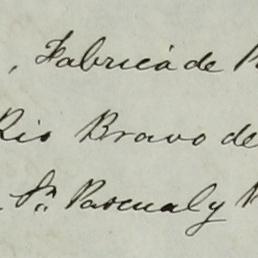 , Fabrica de
Rio Bravo de
Sn. Pascual y